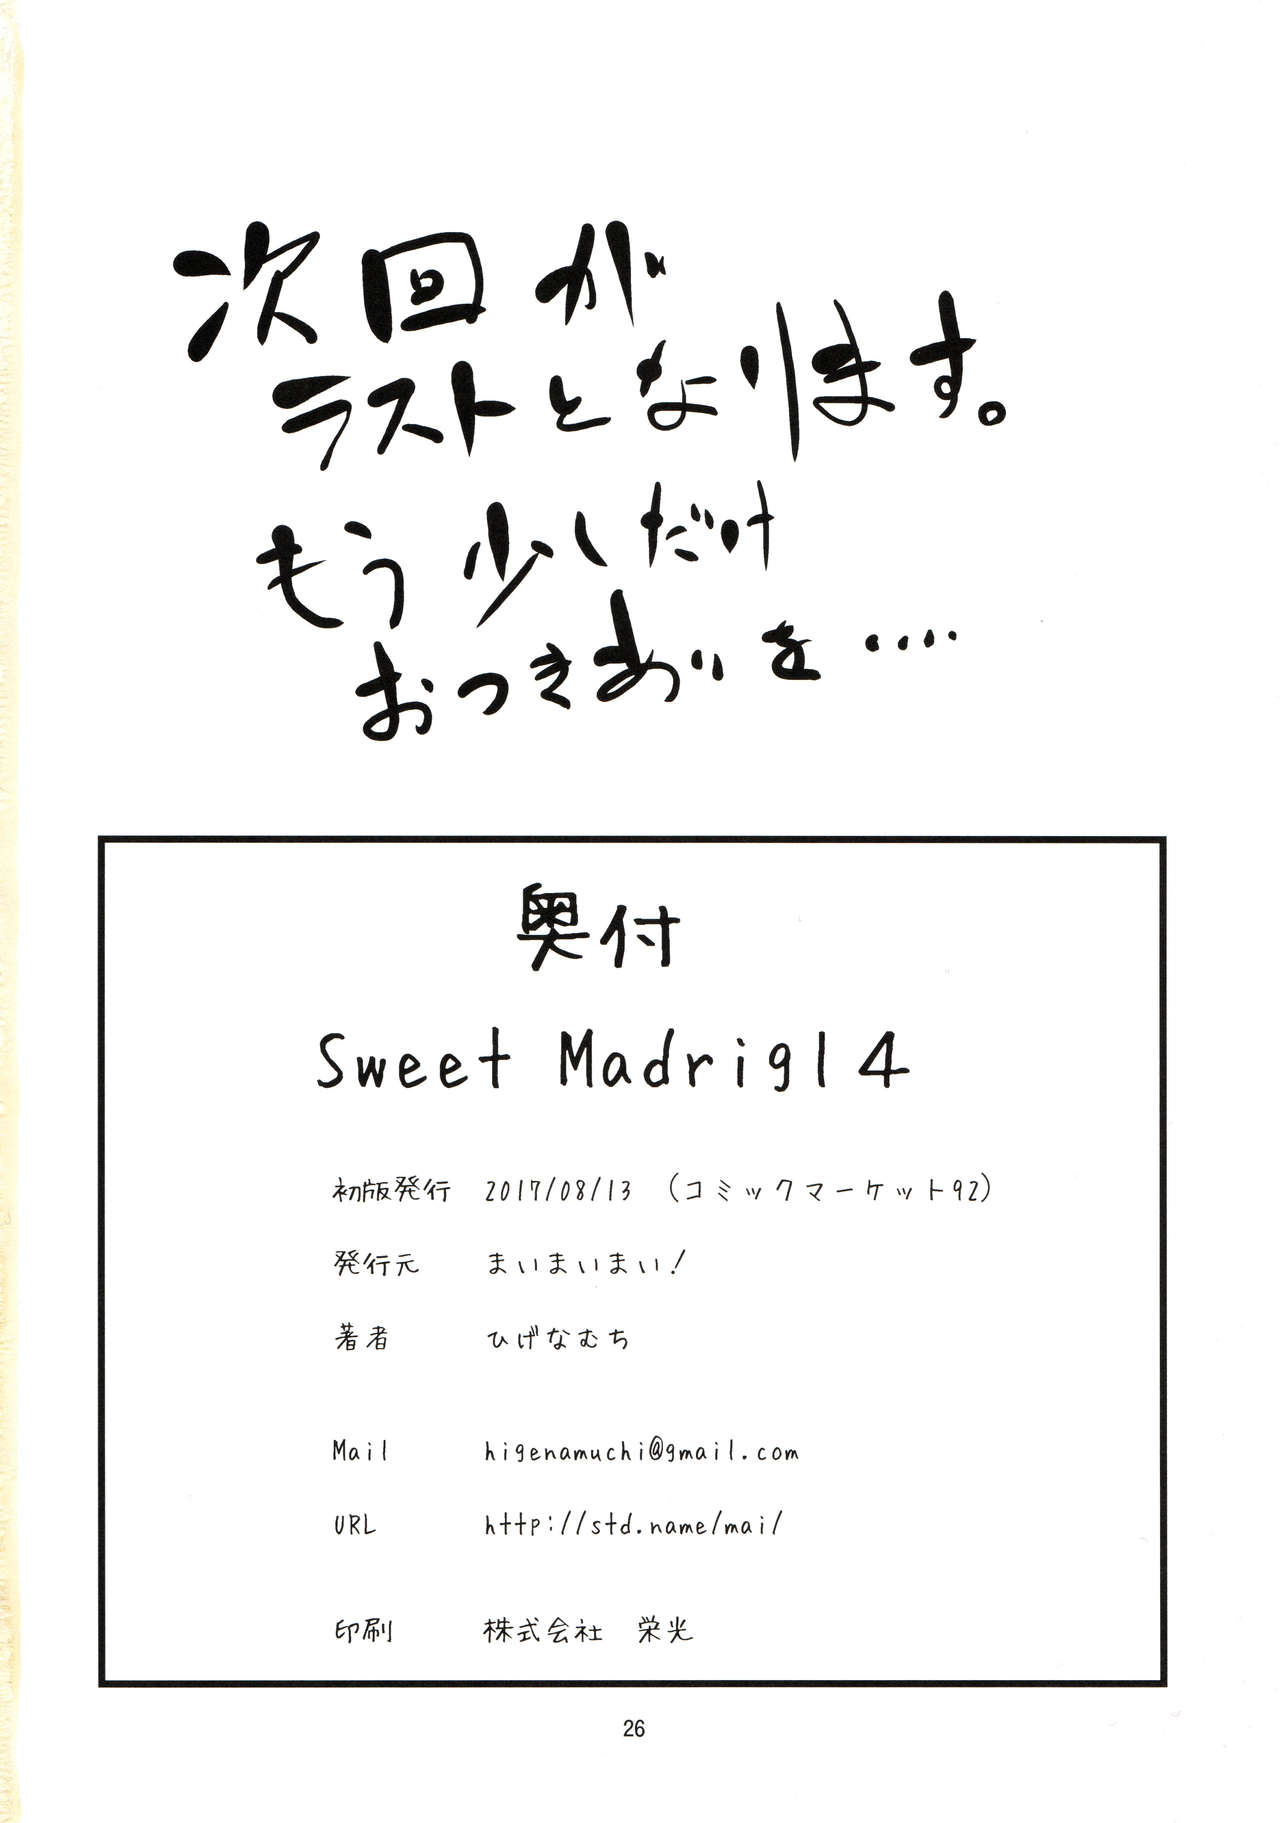 次回が
ラストとなります。
もう少しだけ
おつきあいを‥‥
奥付
Sweet Madrigl 4
初版発行 2017/08/13 (コミックマーケット92)
発行元 まいまいまい!
著者 ひげなむち
Mail higenamuchi@gmail.com
URL http://std.name/mai/
印刷 株式会社 栄光
26